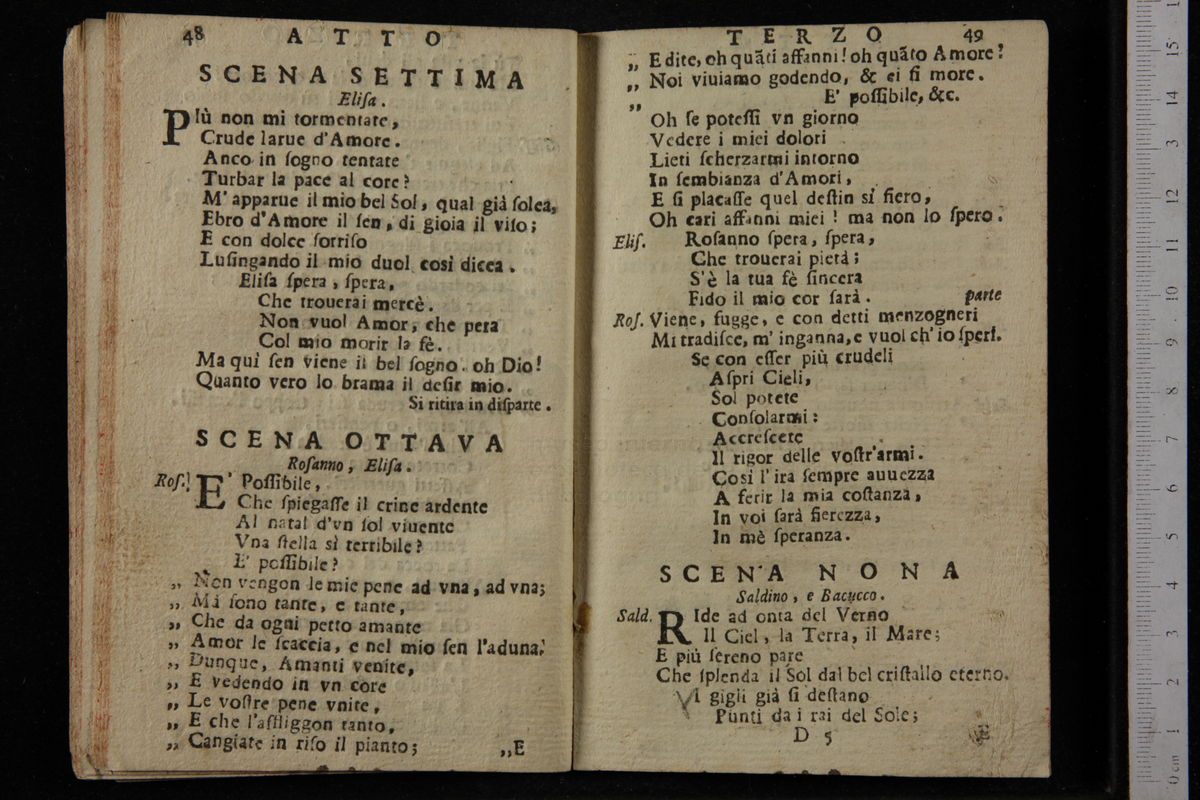 48 ATTO
SCENA SETTIMA
Eliſa.
PIù non mi tormentate,
Crude larue d'Amore.
Anco in ſogno tentate
Turbar la pace al core?
M'apparue il mio bel Sol, qual già ſolea,
Ebro d'Amore il ſen, di gioia il viſo;
E con dolce ſorriſo
Luſingando il mio duol così dicea.
Eliſa ſpera, ſpera,
Che trouerai mercè.
Non vuol Amor, che pera
Col mio morir la fè.
Ma quì ſen viene il bel ſogno. oh Dio!
Quanto vero lo brama il deſir mio.
Si ritira in diſparte.
SCENA OTTAVA
Roſanno, Eliſa.
Roſ. E' Poſſibile,
Che ſpiegaſſe il crine ardente
Al natal d'vn ſol viuente
Vna ſtella sì terribile?
E' poſſibile?
„ Non vengon le mie pene ad vna, ad vna;
„ Mà ſono tante, e tante,
„ Che da ogni petto amante
„ Amor le ſcaccia, e nel mio ſen l'aduna.
„ Dunque, Amanti venite,
„ E vedendo in vn core
„ Le voſtre pene vnite,
„ E che l'affliggon tanto,
„ Cangiate in riſo il pianto;
„E
TERZO 49
„ E dite, oh quãti affanni! oh quãto Amore!
„ Noi viuiamo godendo, & ei ſi more.
„ E' poſſibile, &c.
Oh ſe poteſſi vn giorno
Vedere i miei dolori
Lieti ſcherzarmi intorno
In ſembianza d'Amori,
E ſi placaſſe quel deſtin sì fiero,
Oh cari affanni miei! ma non lo ſpero.
Eliſ. Roſanno ſpera, ſpera,
Che trouerai pietà;
S'è la tua fè ſincera
Fido il mio cor ſarà. parte
Roſ. Viene, fugge, e con detti menzogneri
Mi tradiſce, m'inganna, e vuol ch'io ſperi.
Se con eſſer più crudeli
Aſpri Cieli,
Sol potete
Conſolarmi:
Accreſcete
Il rigor delle voſtr'armi.
Così l'ira ſempre auuezza
A ferir la mia coſtanza,
In voi ſarà fierezza,
In mè ſperanza.
SCENA NONA
Saldino, e Bacucco.
Sald. RIde ad onta del Verno
Il Ciel, la Terra, il Mare;
E più ſereno pare
Che ſplenda il Sol dal bel criſtallo eterno.
I gigli già ſi deſtano
Punti da i rai del Sole;
D 5 E
0 cm 1 2 3 4 5 6 7 8 9 10 11 12 13 14 15